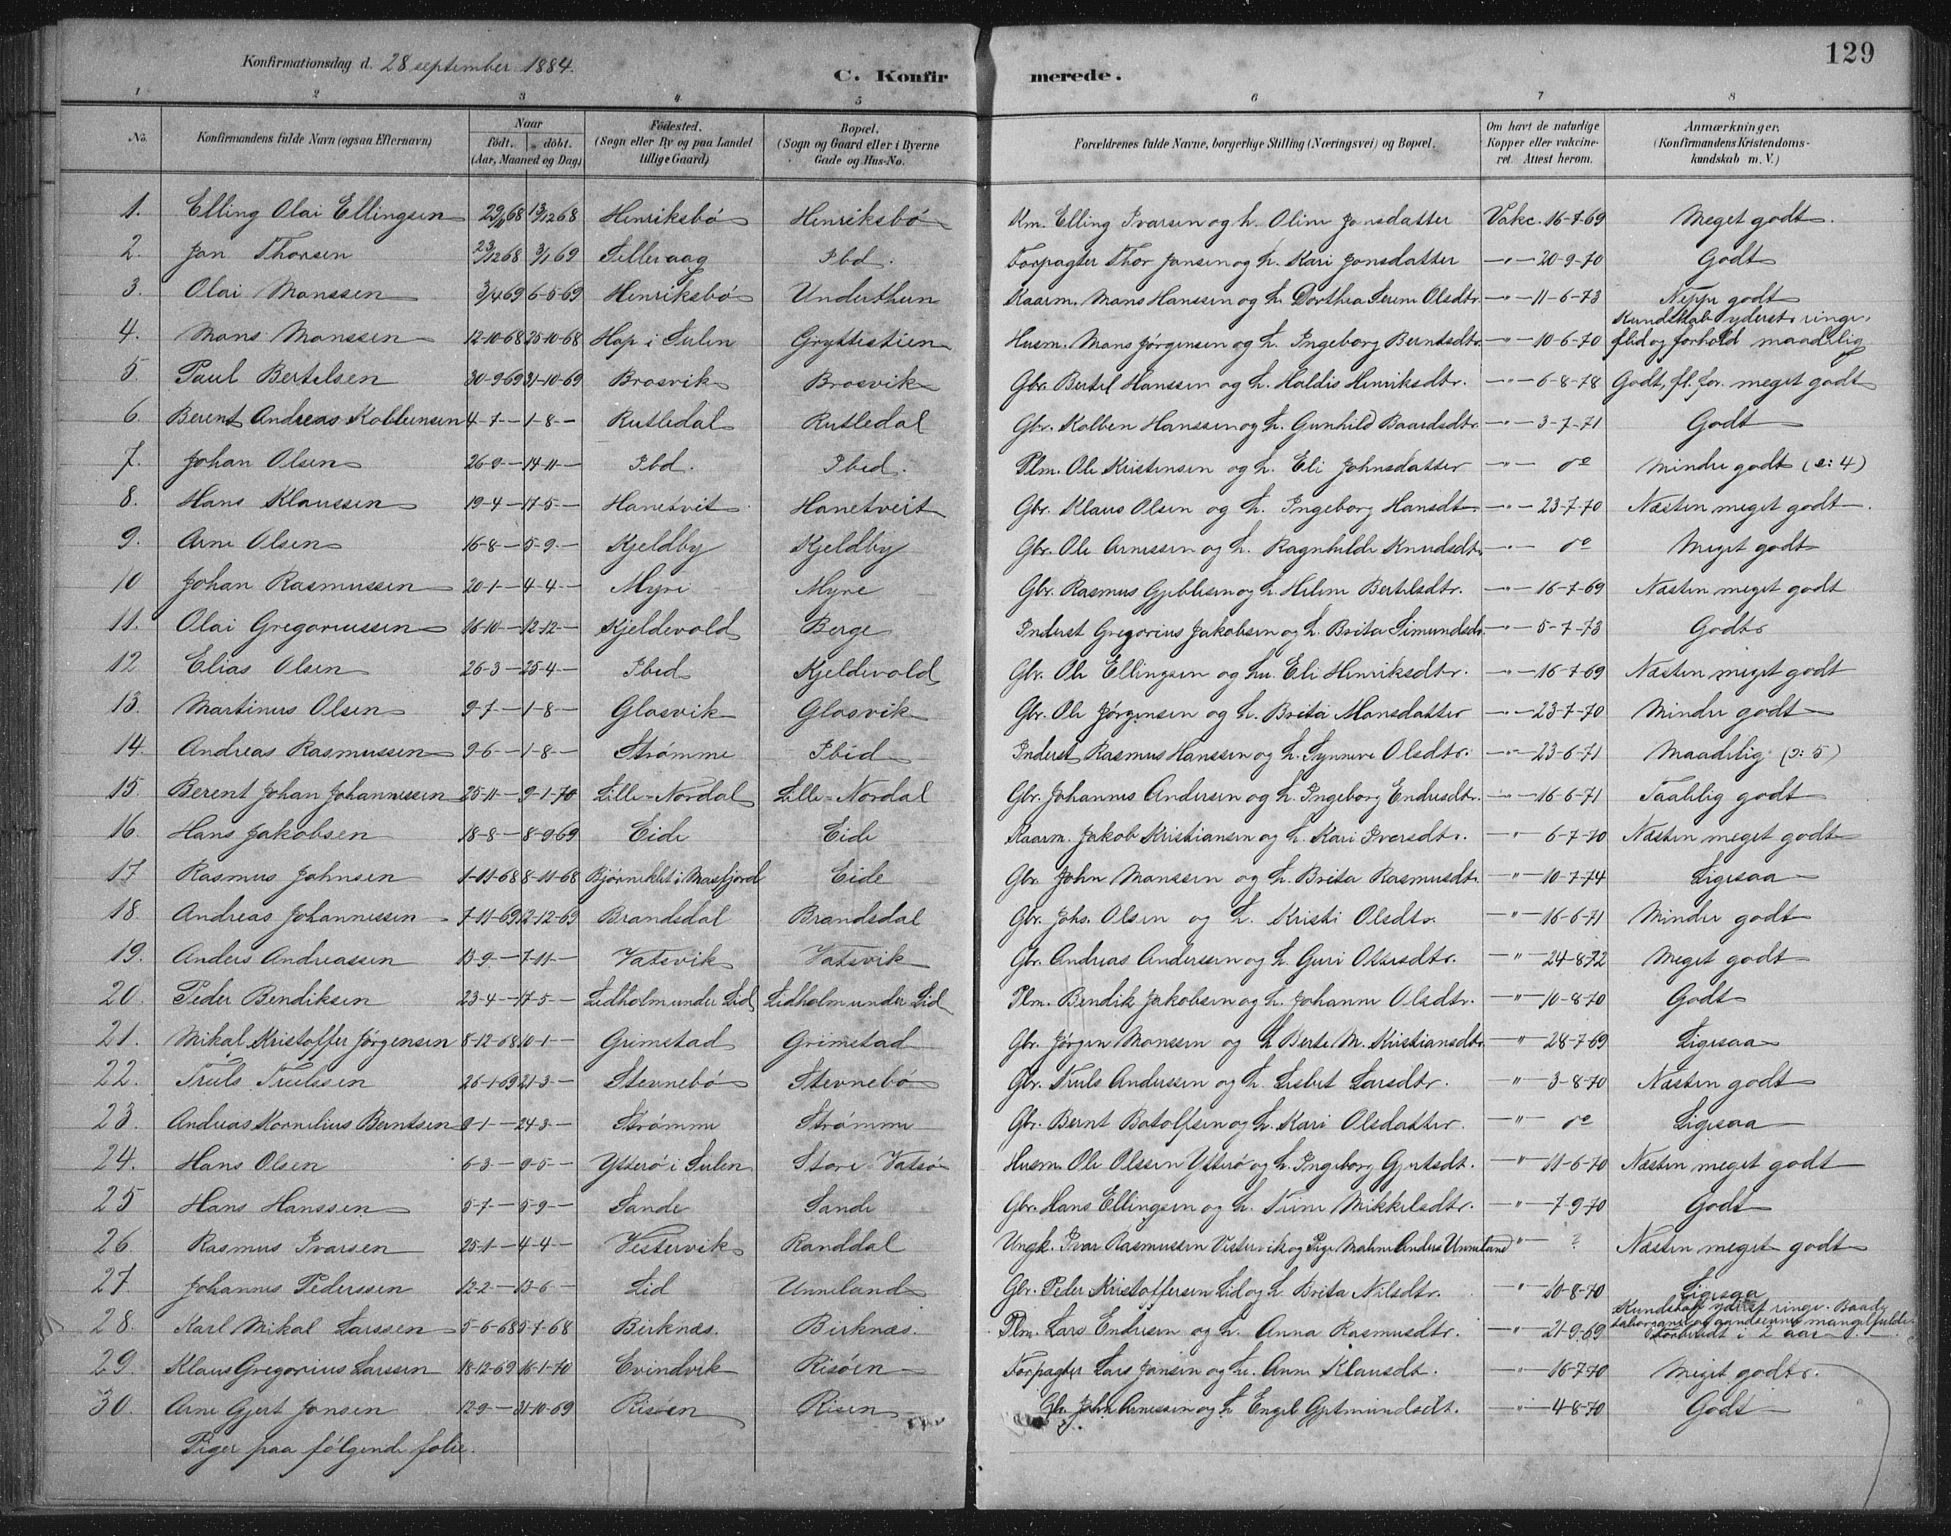 Konfirmationsdag d. 28 september 1884.
C. Konfirmerede.
129
1 2 3 4 5 6 7 8
No. Konfirmandens fulde Navn (ogsaa Efternavn) Naar født. døbt. (Aar, Maaned og Dag) Fødested. (Sogn eller By og paa Landet tillige Gaard) Bopæl. (Sogn og Gaard eller i Byerne Gade og Hus-No. Forældrenes fulde Navne, borgerlige Stilling (Næringsvei) og Bopæl. Om havt de naturlige Kopper eller vakcineret. Attest herom. Anmærkninger. (Konfirmandens Kristendomskundskab m. V.)
1. Elling Olai Ellingsen 29/11 68 13/12 68 Henriksbø Henriksbø Km. Elling Ivarsen og h. Oline Jonsdatter Vakc. 16-7-69 Meget godt.
2. Jan Thorsen 23/12 68 3/1 69 Silleraag Ibd. Forpagter Thor Jansen og h. Kari Jonsdatter -"- 20-9-70 Godt
3. Olai Monssen 3/4 69 6-5-69 Henriksbø Underthun Kaarm. Mons Hanssen og h. Dorthea Serine Olsdtr. -"- 11-6-73 Neppe godt
4. Mons Monssen 12-10-68 25-10-68 Hop i Sulen Gryttestien Husm. Mons Jørgensen og h. Ingeborg Berntsdtr. -"- 10-6-70 Kundskab yderst ringe. flid og forhold maadelig
5. Paul Bertelsen 30-9-69 31-10-69 Brosvik Brosvik Gbr. Bertel Hanssen og h. Haldis Henriksdtr. -"- 6-8-78 Godt, fl. for. meget godt
6. Berent Andreas Kolbeinsen 4-7- 1-8- Rutledal Rutledal Gbr. Kolben Hanssen og h. Gunhild Baardsdtr. -"- 3-7-71 Godt
7. Johan Olsen 26-9- 14-11- Ibd. Ibid. Plm. Ole Kristensen og h. Eli Johnsdatter -"- do Mindre godt (ɔ: 4)
8. Hans Klaussen 19-4- 17-5- Hanetvit Hanetveit Gbr. Klaus Olsen og h. Ingeborg Hansdtr -"- 23-7-70 Næsten meget godt.
9. Arne Olsen 16-8- 5-9- Kjeldby Kjeldby Gbr. Ole Arnessen og h. Ragnhilde Knudsdtr -"- do Meget godt
10 Johan Rasmussen 20-1- 4-4- Myre Myre Gbr. Rasmus Gjeblesen og h. Helene Bertelsdtr. -"- 16-7-69 Næsten meget godt
11. Olai Gregoriussen 16-10- 12-12- Kjeldevold Berge Inderst Gregorius Jakobsen og h. Brita Simundsdtr. -"- 5-7-73 Godt
12. Elias Olsen 26-3- 25-4- Ibid Kjeldevold Gbr. Ole Ellingsen og hu. Eli Henriksdtr. -"- 16-7-69 Næsten meget godt
13. Martinus Olsen 9-7- 1-8- Glosvik Glosvik Gbr. Ole Jørgensen og h. Brita Monsdatter -"- 23-7-70 Mindre godt
14. Andreas Rasmussen 9-6- 1-8- Strømme Ibid Inderst Rasmus Hanssen og h. Synneve Olsdtr. -"- 23-6-71 Maadelig (ɔ: 5)
15. Berent Johan Johannessen 25-11- 9-1-70 Lille-Nordal Lille-Nordal Gbr. Johannes Andersen og h. Ingeborg Endresdtr. -"- 16-6-71 Taalelig godt
16. Hans Jakobsen 18-8- 8-9-69 Eide Eide Kaarm. Jakob Kristiansen og h. Kari Iversdtr. " 6-7-70 Næsten meget godt
17 Rasmus Johnsen 1-11-68 8-11-68 i Masfjord Eide Gbr. John Monssen og h. Brita Rasmusdtr. "- 10-7-74 Ligesaa
18. Andreas Johannessen 7-11-69 12-12-69 Brandsdal Brandsdal Gbr. Johs. Olsen og h. Kristi Olsdtr. "- 16-6-71 Mindre godt
19. Anders Andreassen 13-9- 7-11- Vatsvik Vatsvik Gbr. Andreas Anderssen og h. Guri Ottersdtr. "- 24-8-72 Meget godt
20. Peder Bendiksen 23-4- 17-5- Lidholm under Lid Lidholm under Lid Plm. Bendik Jakobsen og h. Johanne Olsdtr. -"- 10-8-70 Godt
21. Mikal Kristoffer Jørgensen 8-12-68 10-1- Grimstad Grimstad Gbr. Jørgen Monssen og h. Berte M. Kristiansdtr. "- 28-7-69 Ligesaa
22. Truls Trulssen 26-1-69 21-3- Stevnebø Stevnebø Gbr. Truls Anderssen og h. Lisbet Larsdtr. -"- 3-8-70 Næsten godt
23. Andreas Kornelius Berntsen 9-1- 24-3- Strømme Strømme Gbr. Bernt Botolfsen og h. Kari Olsdatter. -"- do Ligesaa
24. Hans Olsen 6-3- 9-5- Ytterø i Sulen Store Vatsø Husm. Ole Olssen Ytterø og h. Ingeborg Gjertsdt. -"- 11-6-70 Næsten meget godt
25 Hans Hanssen 5-7- 5-9- Sande Sande Gbr. Hans Ellingsen og h. Trine Mikkelsdtr. -"- 7-9-70 Godt
26 Rasmus Ivarsen 25-1- 4-4- Vestervik Randdal Ungk. Ivar Rasmussen Vestervik og Pige Malene Anders. Unneland -"- ? Næsten meget godt
27. Johannes Pederssen 12-2- 13-6- Lid Unneland Gbr. Peder Kristoffersen Lid og h. Brita Nilsdtr. -"- 10-8-70 Ligesaa
28. Karl Mikal Larssen 5-6-68 5-7-68 Birknæs. Birknæs. Plm. Lars Endresen og h. Anna Rasmusdtr. -"- 21-9-69 Kundskab yderst ringe. Baade og aandsevner mangelfulde. Forberedt i 2 aar.
29. Klaus Gregorius Larssen 18-12-69 16-1-70 Evindvik Risøen Forpagter Lars Jansen og h. Anne Klausdt. -"- 16-7-70 Meget godt.
30. Arne Gjert Jonsen 12-9- 31-10-69 Risøen Risøen Gbr. John Arnessen og h. Engel -"- 4-8-70 Godt
Piger paa følgende folie.